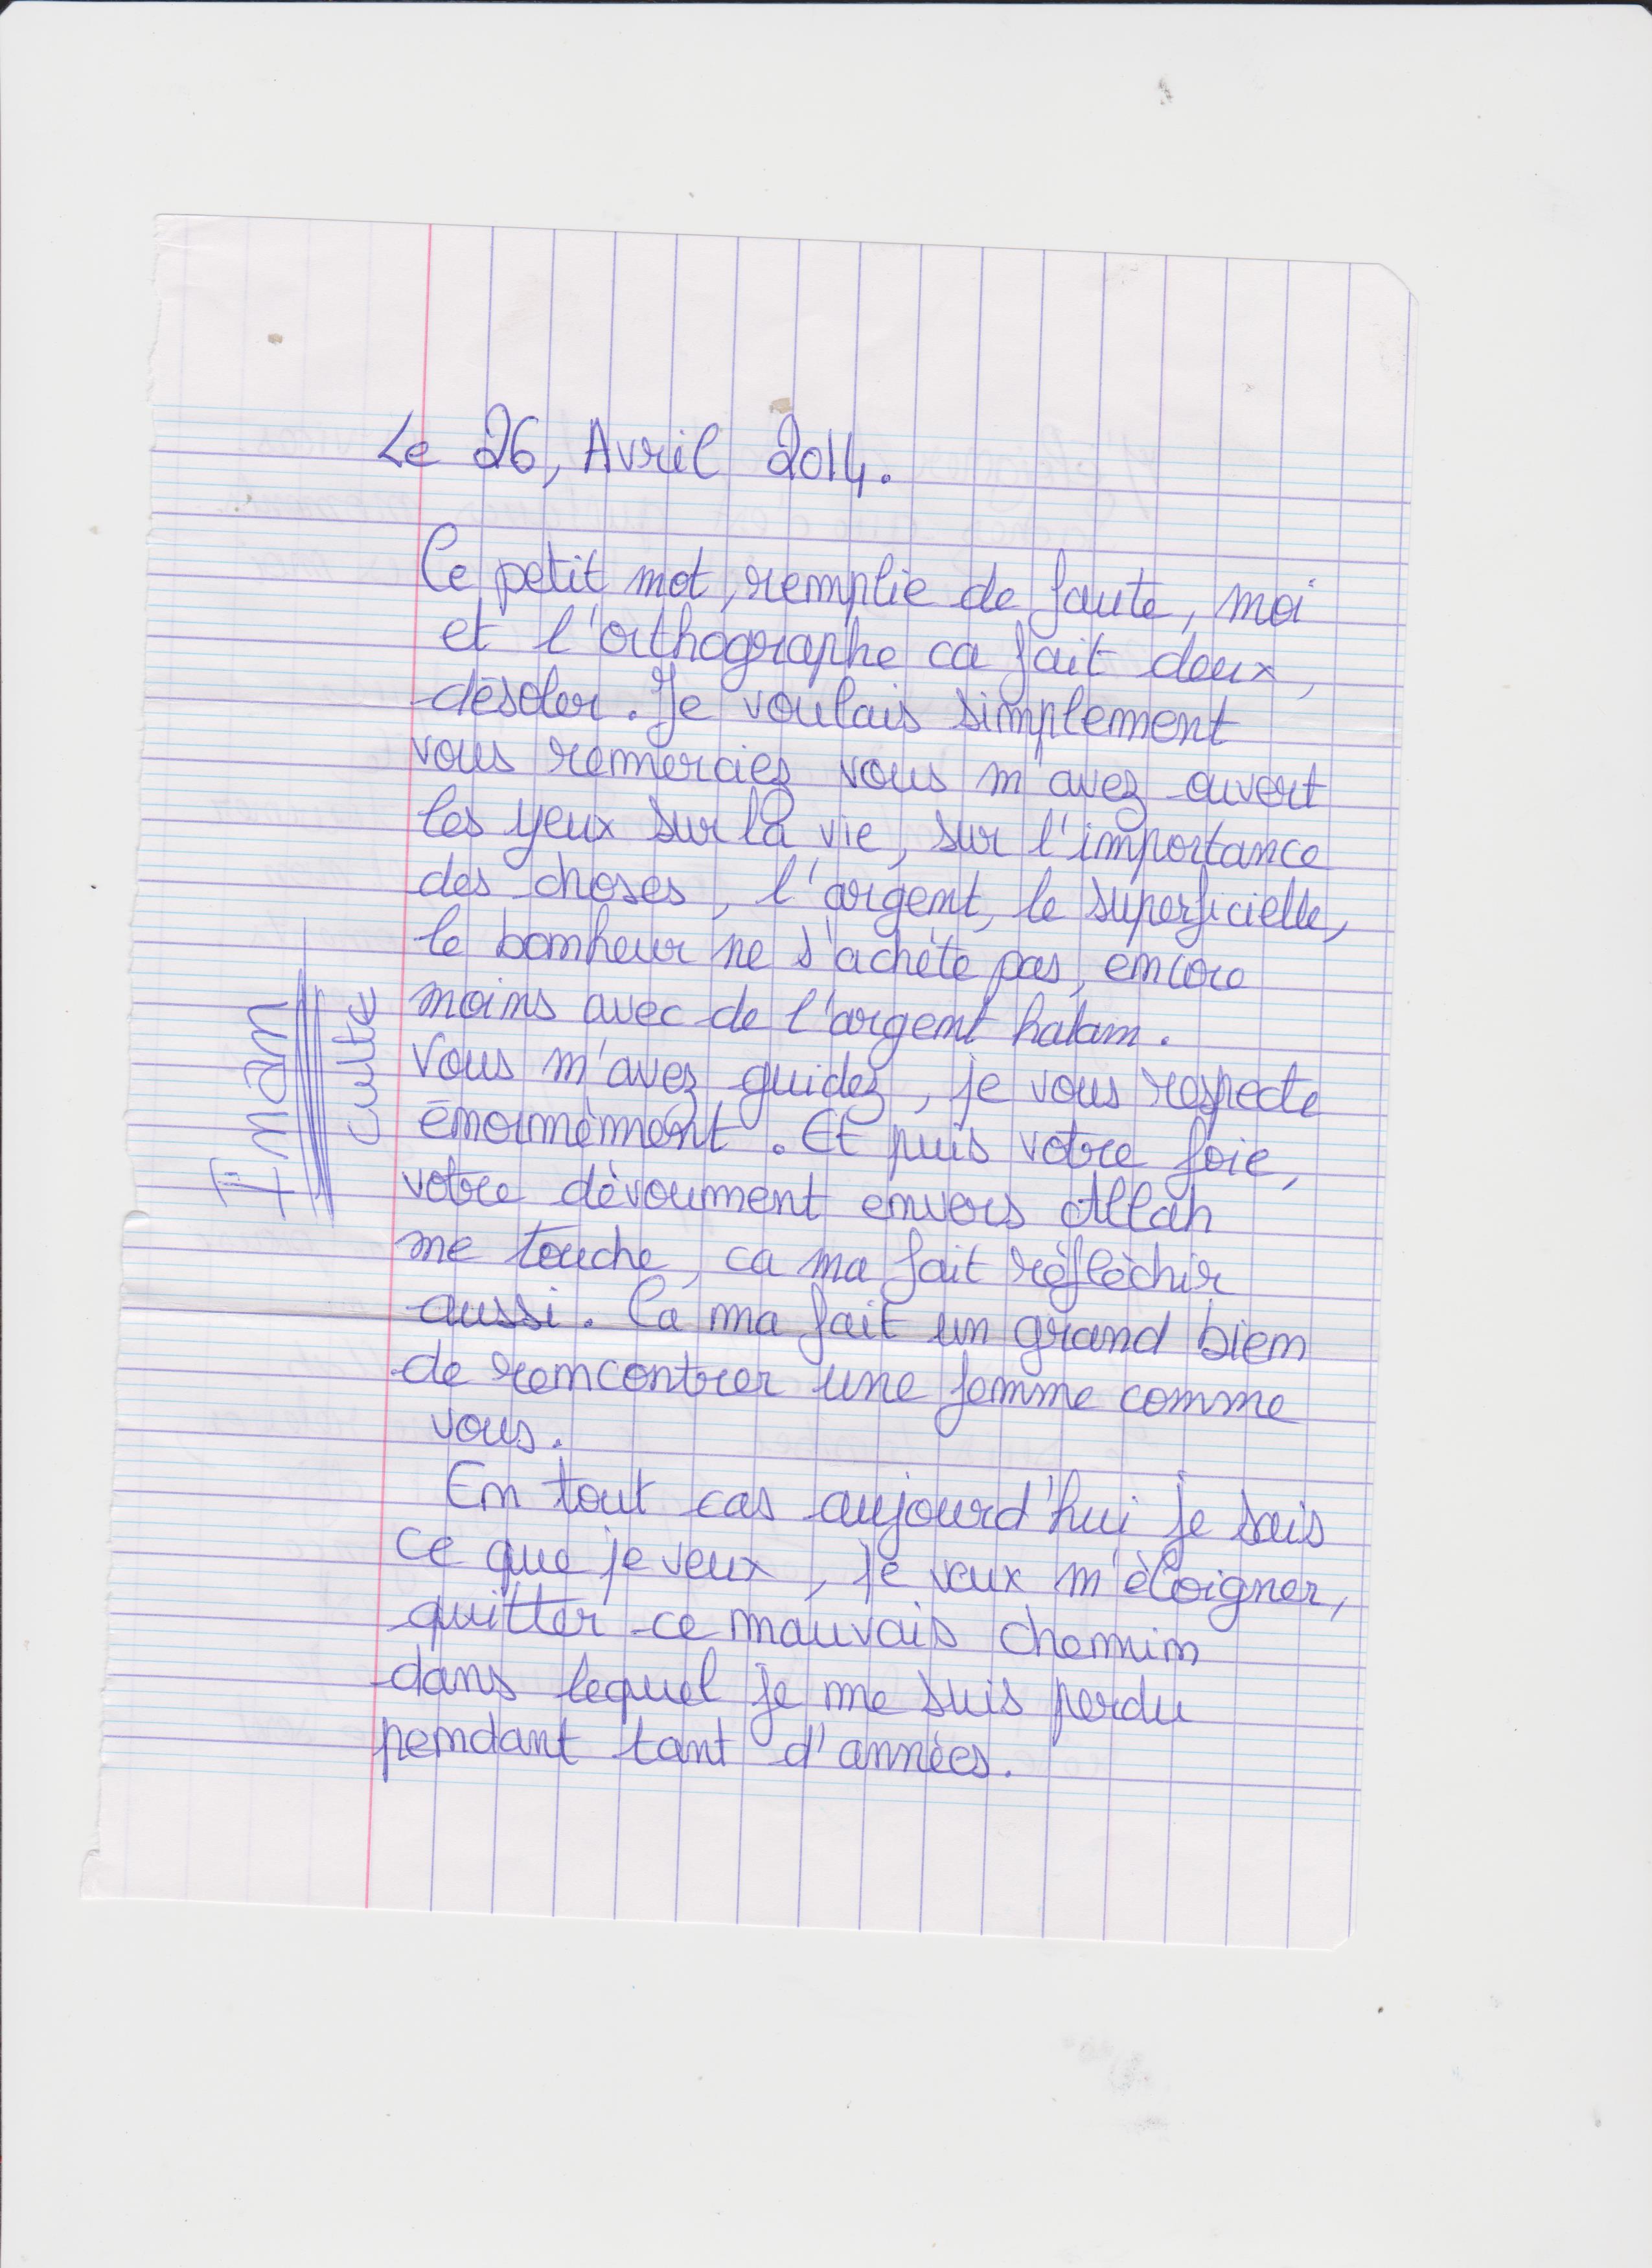 Le 26, Avril 2014.
Ce petit mot, remplie de faute, moi
et l'orthographe ca fait deux,
désoler. Je voulais simplement
vous remerciez vous m'avez ouvert
les yeux sur la vie, sur l'importance
des choses, l'argent, le superficielle,
le bonheur ne s'achète pas, encore
moins avec de l'argent halam.
Vous m'avez guidez, je vous respecte
énormèment. Et puis votre foie,
votre dèvoument envers Allah
me touche, ca ma fait rèflèchir
aussi. Ca ma fait un grand bien
de rencontrer une femme comme
vous.
En tout cas aujourd'hui je sais
ce que je veux, je veux m'èloigner,
quitter ce mauvais chemin
dans lequel je me suis perdu
pendant tant d'annèes.
Iman
culte